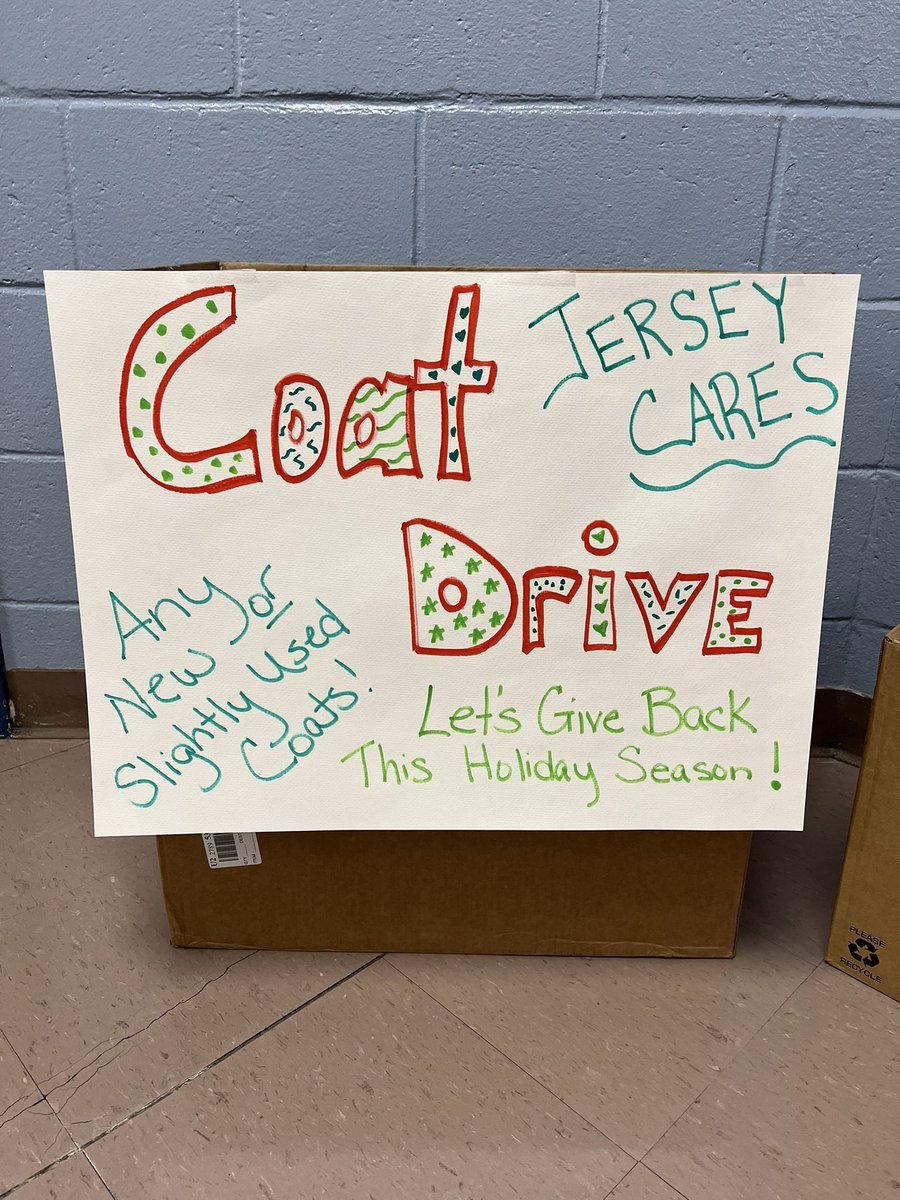 Coat
JERSEY
CARES
Drive
Any or
New
Slightly Used
Coats!
Let's Give Back
This Holiday Season!
PLEASE
RECYCLE